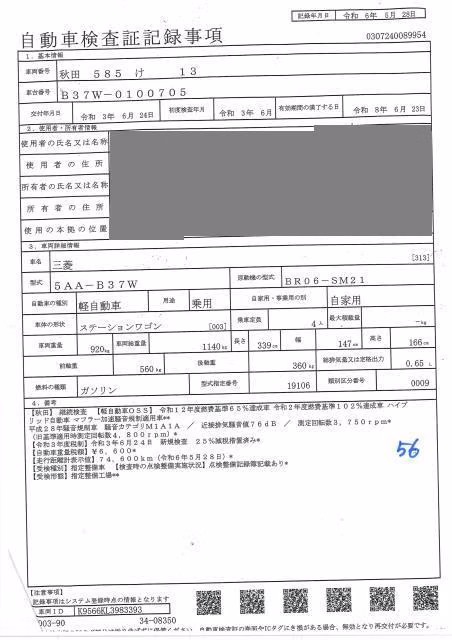 記録年月日 令和 6年 5月 28日
自動車検査証記録事項
0307240089954
1．基本情報
車両番号 秋田 585 け 13
車台番号 B37W-0100705
交付年月日 令和 3年 6月 24日 初度検査年月 令和 3年 6月 有効期間の満了する日 令和 8年 6月 23日
2．使用者・所有者情報
使用者の氏名又は名称
使用者の住所
所有者の氏名又は名称
所有者の住所
使用の本拠の位置
3．車両詳細情報
車名 三菱 [313]
型式 5AA-B37W 原動機の型式 BR06-SM21
自動車の種別 軽自動車 用途 乗用 自家用・事業用の別 自家用
車体の形状 ステーションワゴン [003] 乗車定員 4人 最大積載量 -kg
車両重量 920kg 車両総重量 1140kg 長さ 339cm 幅 147cm 高さ 166cm
前軸重 560kg 後軸重 360kg 総排気量又は定格出力 0.65 L
燃料の種類 ガソリン 型式指定番号 19106 類別区分番号 0009
4．備考
【秋田】 継続検査 【軽自動車OSS】 令和12年度燃費基準65％達成車 令和2年度燃費基準102％達成車 ハイブ
リッド自動車 マフラー加速騒音規制適用車**
平成28年騒音規制車 騒音カテゴリM1A1A ／ 近接排気騒音値76dB ／ 測定回転数3，750rpm*
（旧基準適用時測定回転数4，800rpm）*
【令和3年度税制】令和3年6月24日 新規検査 25％減税措置済み*
【自動車重量税額】￥6，600*
【走行距離計表示値】74，600km（令和6年5月28日）*
【受検種別】指定整備車 【検査時の点検整備実施状況】点検整備記録簿記載あり*
【受検形態】指定整備工場**
56
【注意事項】
記録事項はシステム登録時点の情報となります
車両ID K9566KL3983393
003-90 34-08350